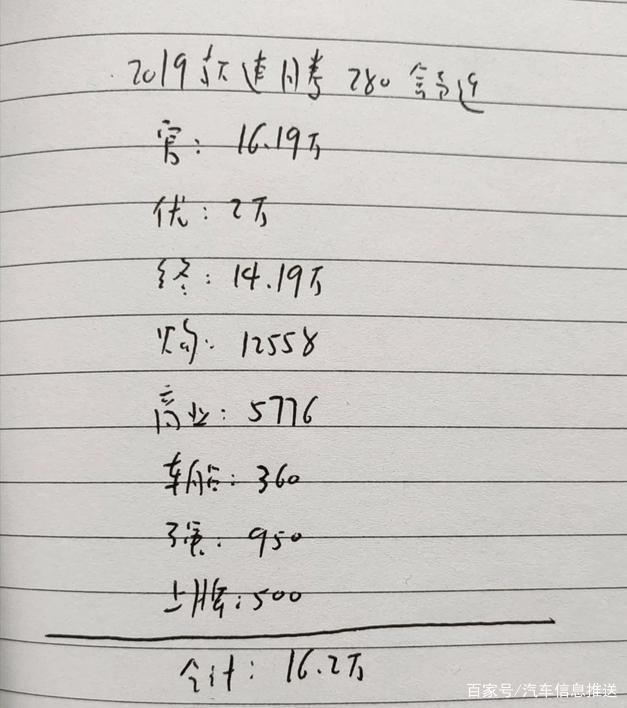 2019款速腾 280 舒适
官: 16.19万
优: 2万
终: 14.19万
购: 12558
商业: 5776
车船: 360
强: 950
上牌: 500
合计: 16.2万
百家号/汽车信息推送